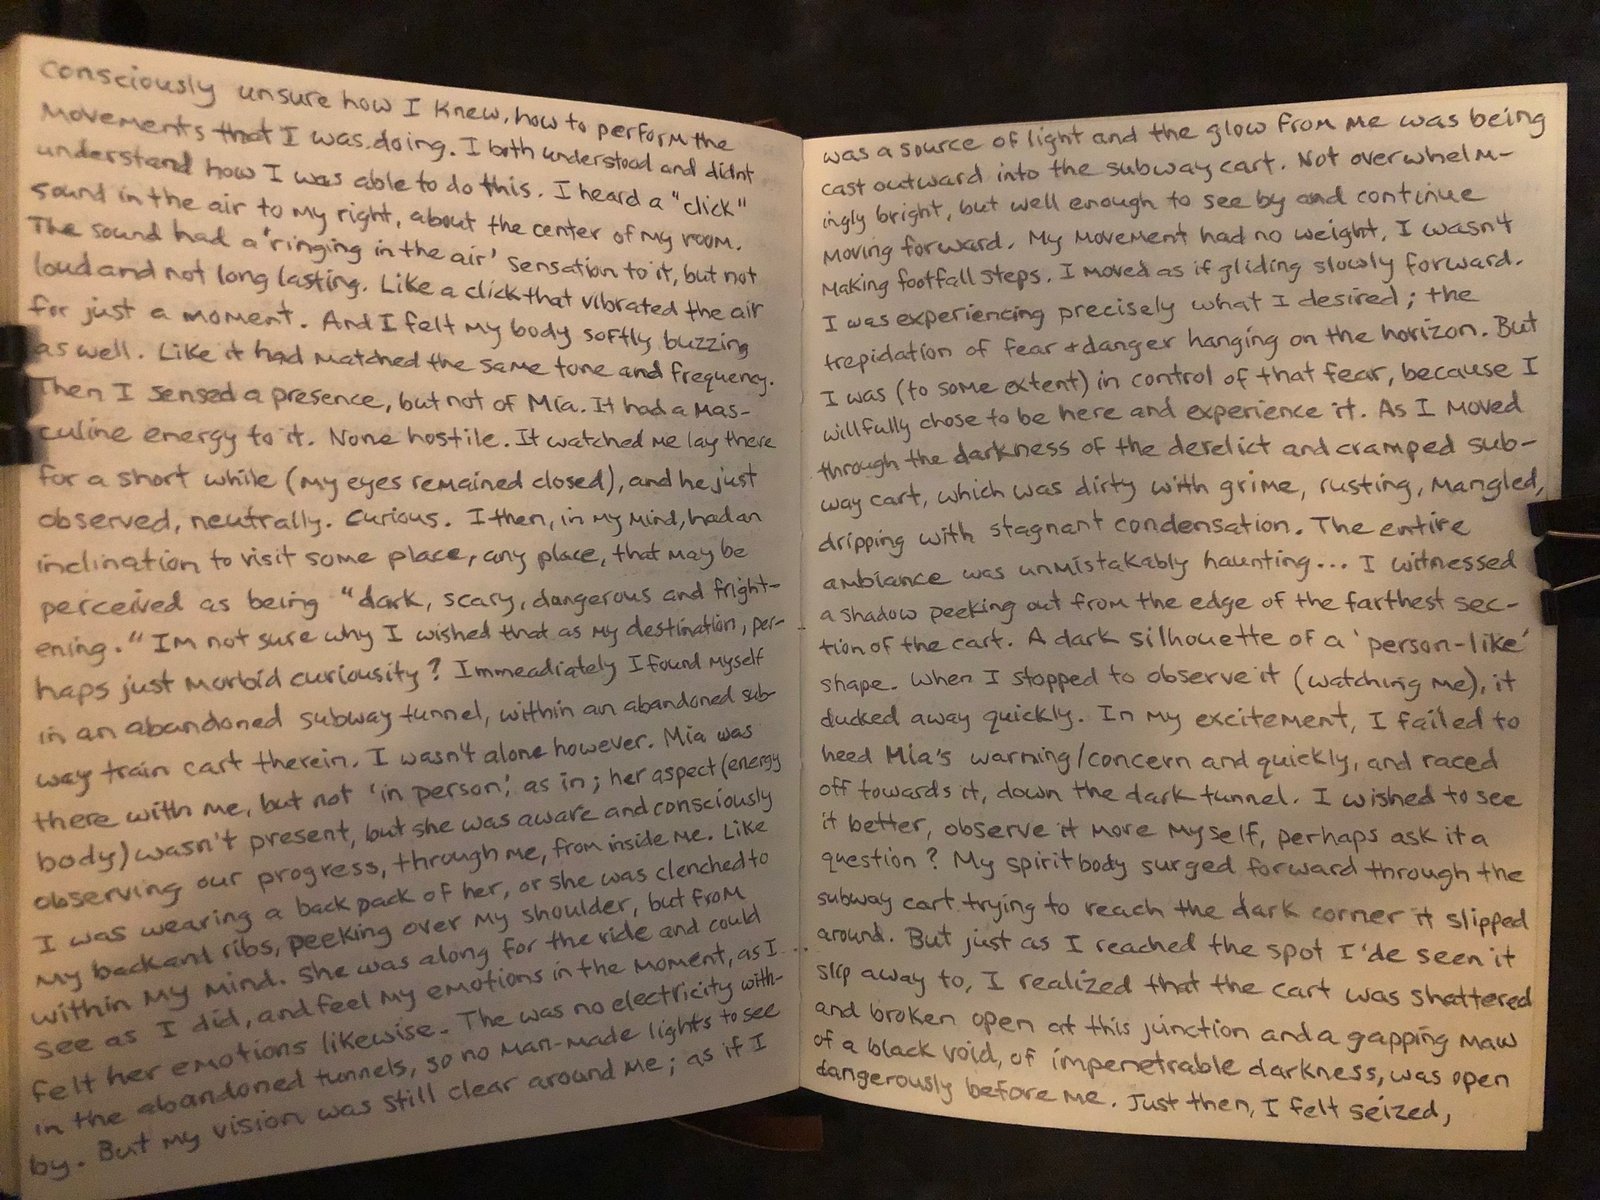 consciously unsure how I knew, how to perform the
movements that I was doing. I both understood and didnt
understand how I was able to do this. I heard a "click"
sound in the air to my right, about the center of my room.
The sound had a 'ringing in the air' sensation to it, but not
loud and not long lasting. Like a click that vibrated the air
for just a moment. And I felt my body softly buzzing
as well. Like it had matched the same tone and frequency.
Then I sensed a presence, but not of Mia. It had a mas-
culine energy to it. None hostile. It watched me lay there
for a short while (my eyes remained closed), and he just
observed, neutrally. Curious. I then, in my mind, had an
inclination to visit some place, any place, that may be
perceived as being "dark, scary, dangerous and fright-
ening." Im not sure why I wished that as my destination, per-
haps just morbid curiousity? Immeadiately I found myself
in an abandoned subway tunnel, within an abandoned sub-
way train cart therein. I wasn't alone however. Mia was
there with me, but not 'in person', as in; her aspect (energy
body) wasn't present, but she was aware and consciously
observing our progress, through me, from inside me. Like
I was wearing a back pack of her, or she was clenched to
my back and ribs, peeking over my shoulder, but from
within my mind. She was along for the ride and could
see as I did, and feel my emotions in the moment, as I
felt her emotions likewise. The was no electricity with-
in the abandoned tunnels, so no man-made lights to see
by. But my vision was still clear around me; as if I
was a source of light and the glow from me was being
cast outward into the subway cart. Not overwhelm-
ingly bright, but well enough to see by and continue
moving forward. My movement had no weight, I wasn't
making footfall steps. I moved as if gliding slowly forward.
I was experiencing precisely what I desired; the
trepidation of fear + danger hanging on the horizon. But
I was (to some extent) in control of that fear, because I
willfully chose to be here and experience it. As I moved
through the darkness of the derelict and cramped sub-
way cart, which was dirty with grime, rusting, mangled,
dripping with stagnant condensation. The entire
ambiance was unmistakably haunting... I witnessed
a shadow peeking out from the edge of the farthest sec-
tion of the cart. A dark silhouette of a 'person-like'
shape. When I stopped to observe it (watching me), it
ducked away quickly. In my excitement, I failed to
heed Mia's warning/concern and quickly, and raced
off towards it, down the dark tunnel. I wished to see
it better, observe it more myself, perhaps ask it a
question? My spirit body surged forward through the
subway cart trying to reach the dark corner it slipped
around. But just as I reached the spot I'de seen it
slip away to, I realized that the cart was shattered
and broken open at this junction and a gapping maw
of a black void, of impenetrable darkness, was open
dangerously before me. Just then, I felt seized,